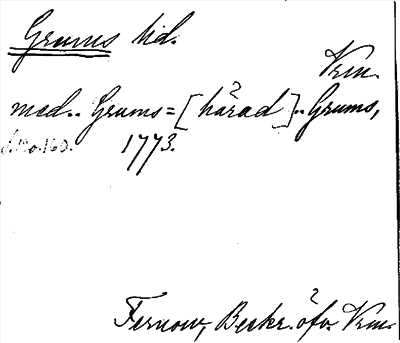 Grums hd.
Vrm.
med.. Grums=[härad].. Grums,
s. 1 o. 160. 1773.
Fernow, Beskr. öfv. Vrm.